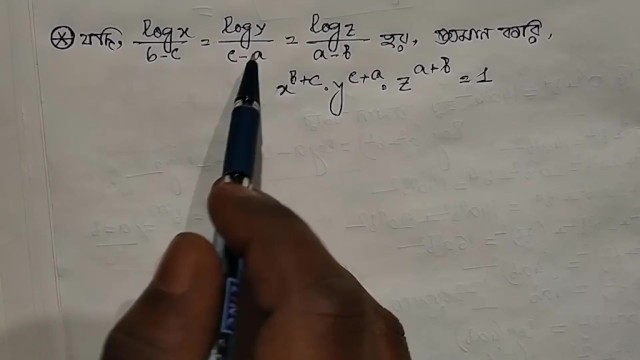 ⊛ যদি, log x / b-c = log y / c-a = log z / a-b হয়, প্রমান করি,
x^{b+c} . y^{c+a} . z^{a+b} = 1